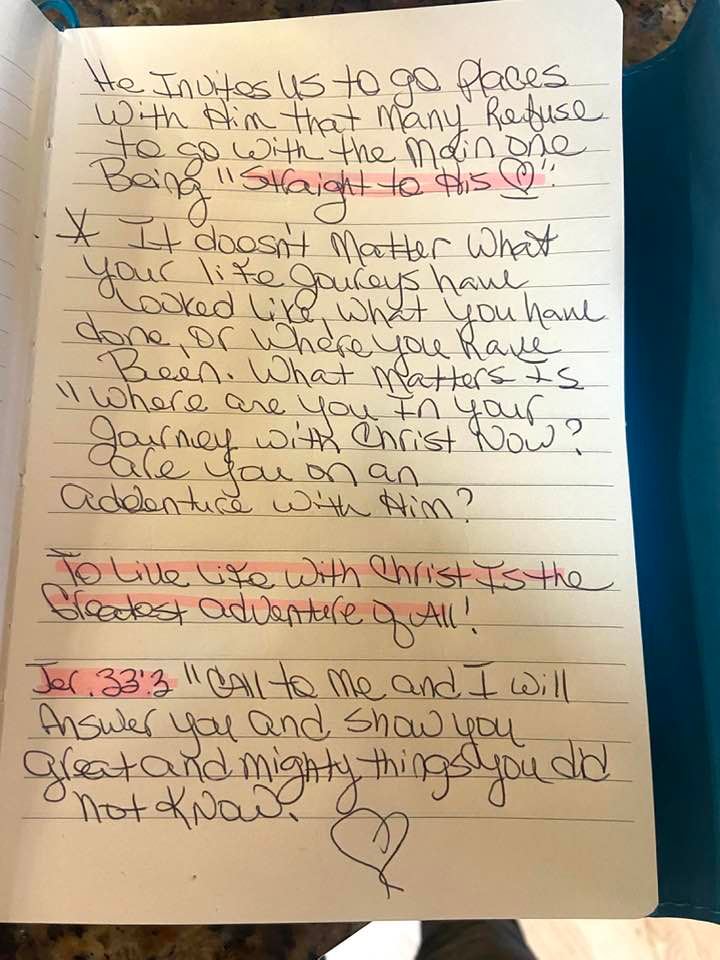 He Invites us to go Places
With Him that Many Refuse
to go with the main one
Being "Straight to His ♡".
* It doesn't Matter What
your life Joureys have
Looked Like, What you have
done, or where you have
Been. What matters Is
"Where are you In your
Journey with Christ Now?
are you on an
adventure with Him?
To Live Life with Christ Is the
Greatest adventure of All!
Jer. 33:3 "CAll to Me and I will
Answer you and show you
great and mighty things you did
not Know.